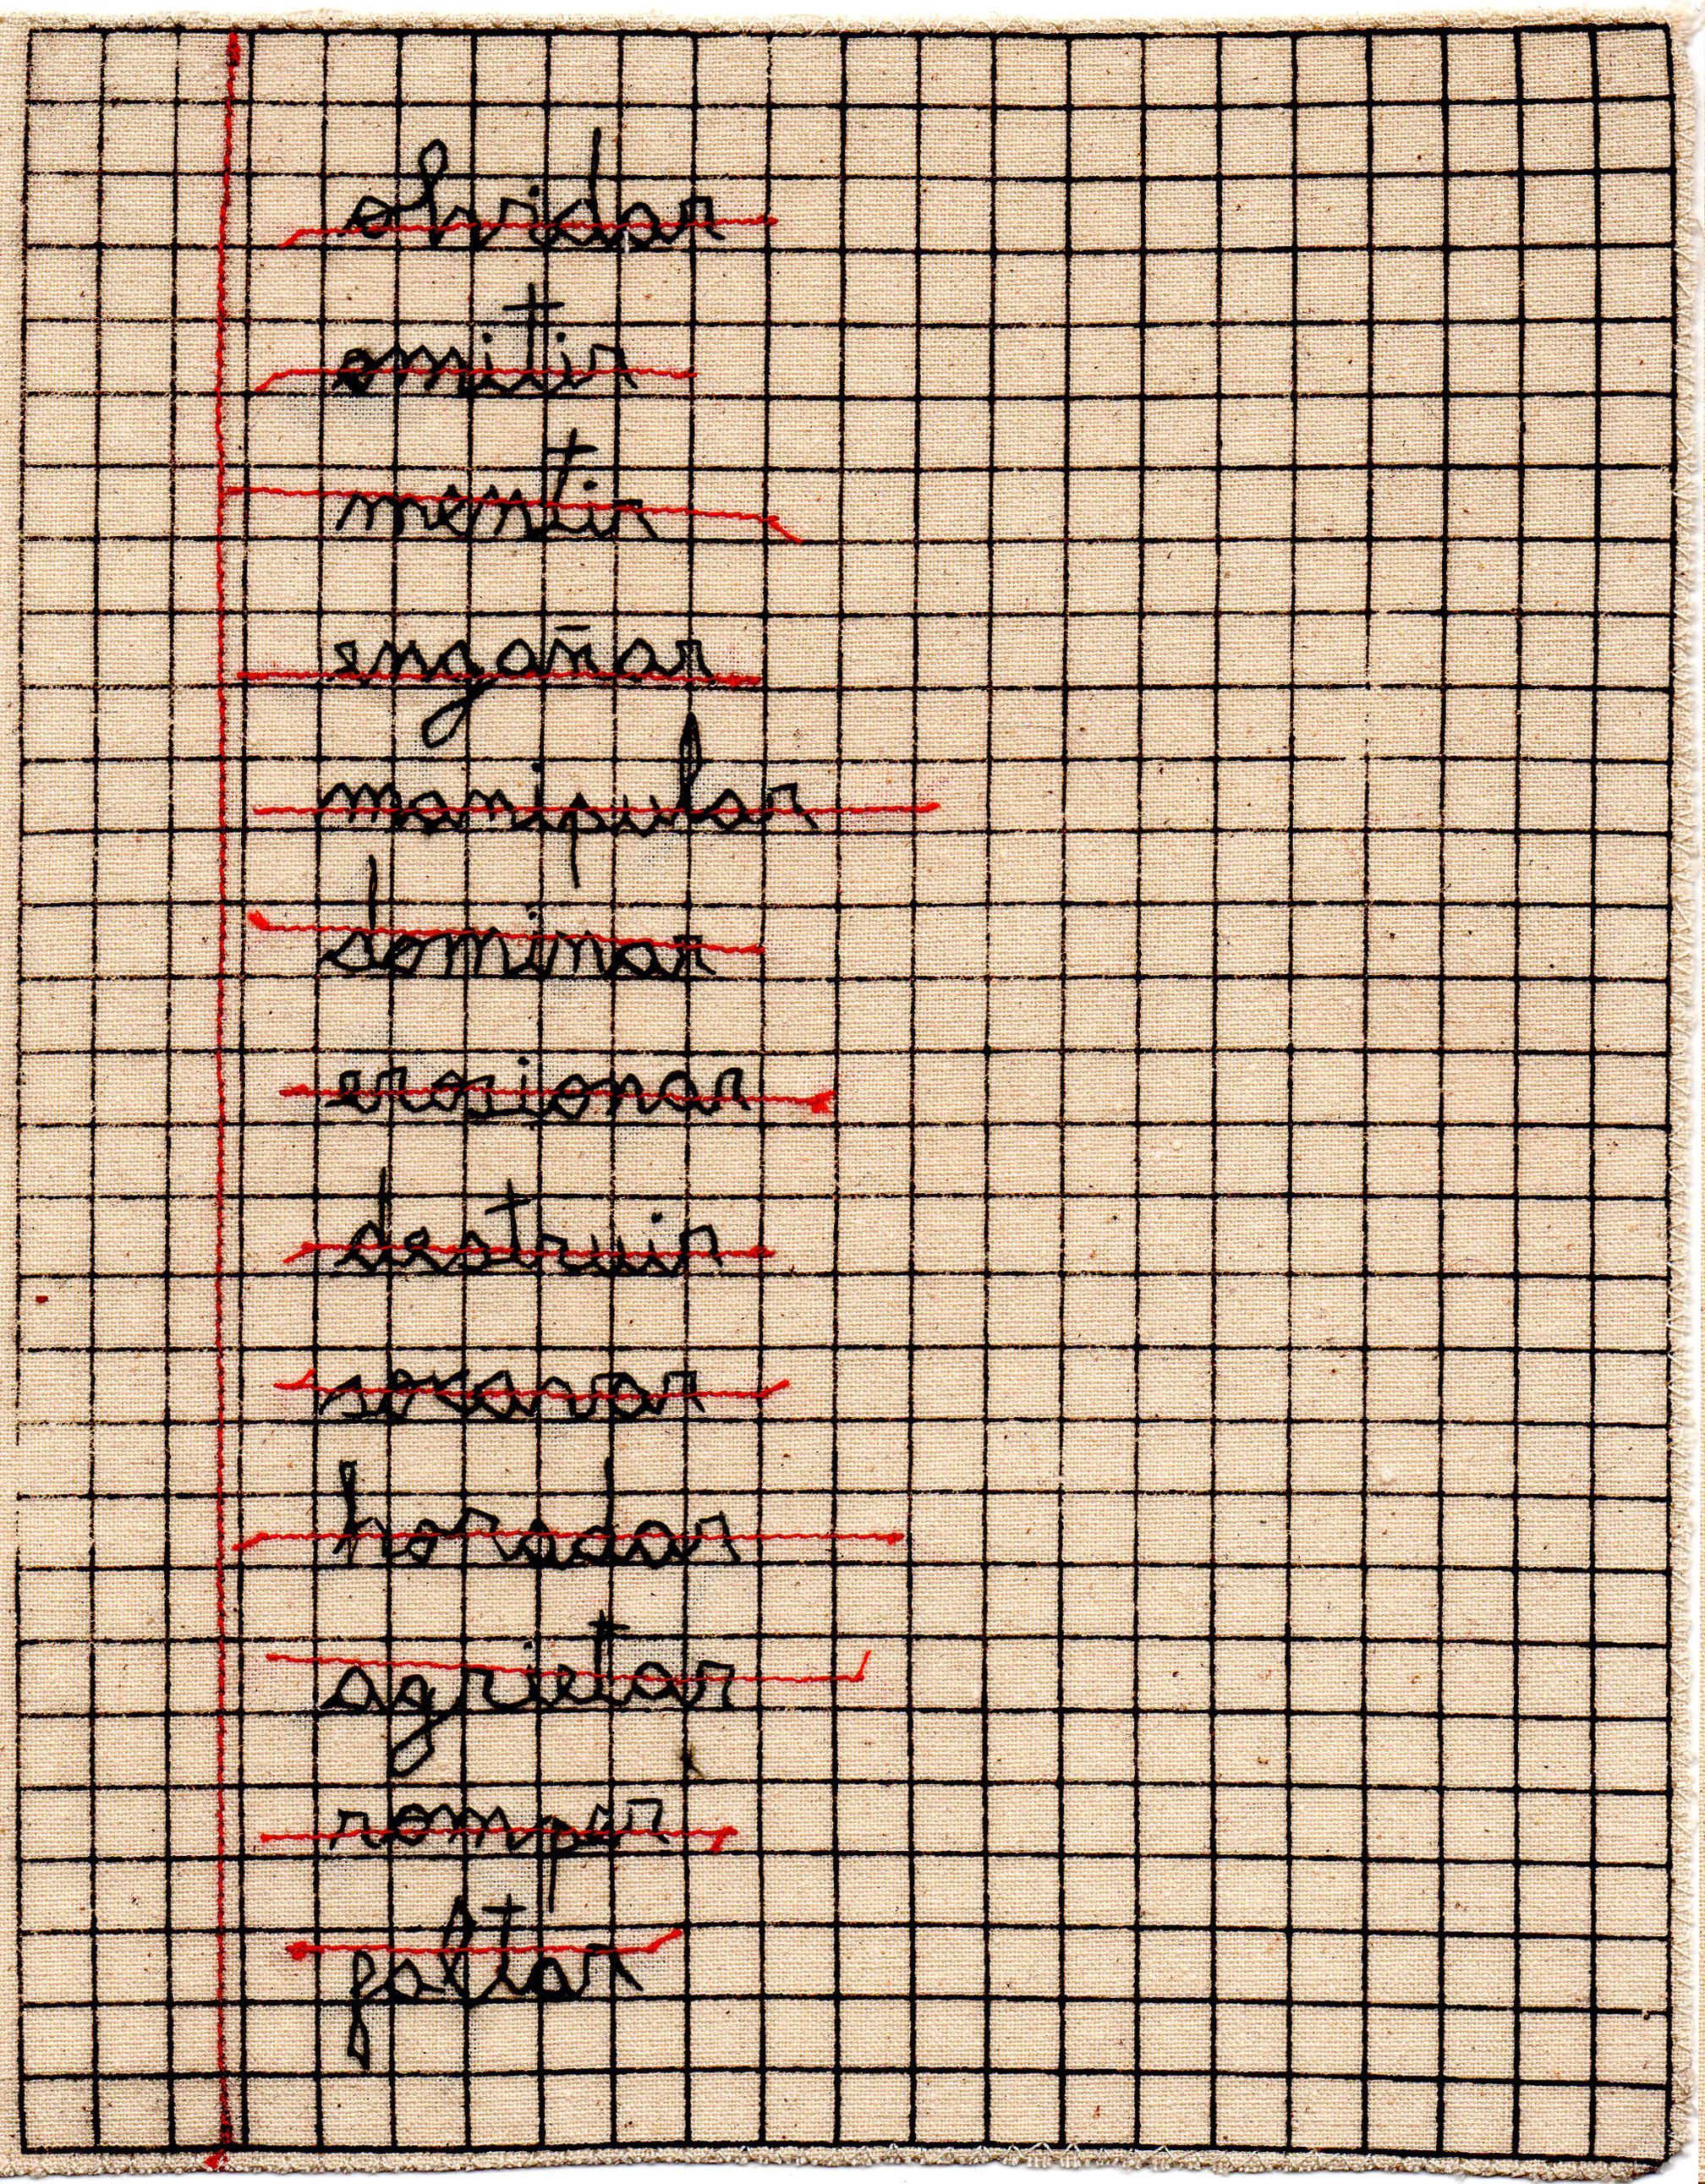 olvidar
omitir
mentir
engañar
manipular
dominar
erosionar
destruir
socavar
horadar
agrietar
romper
faltar